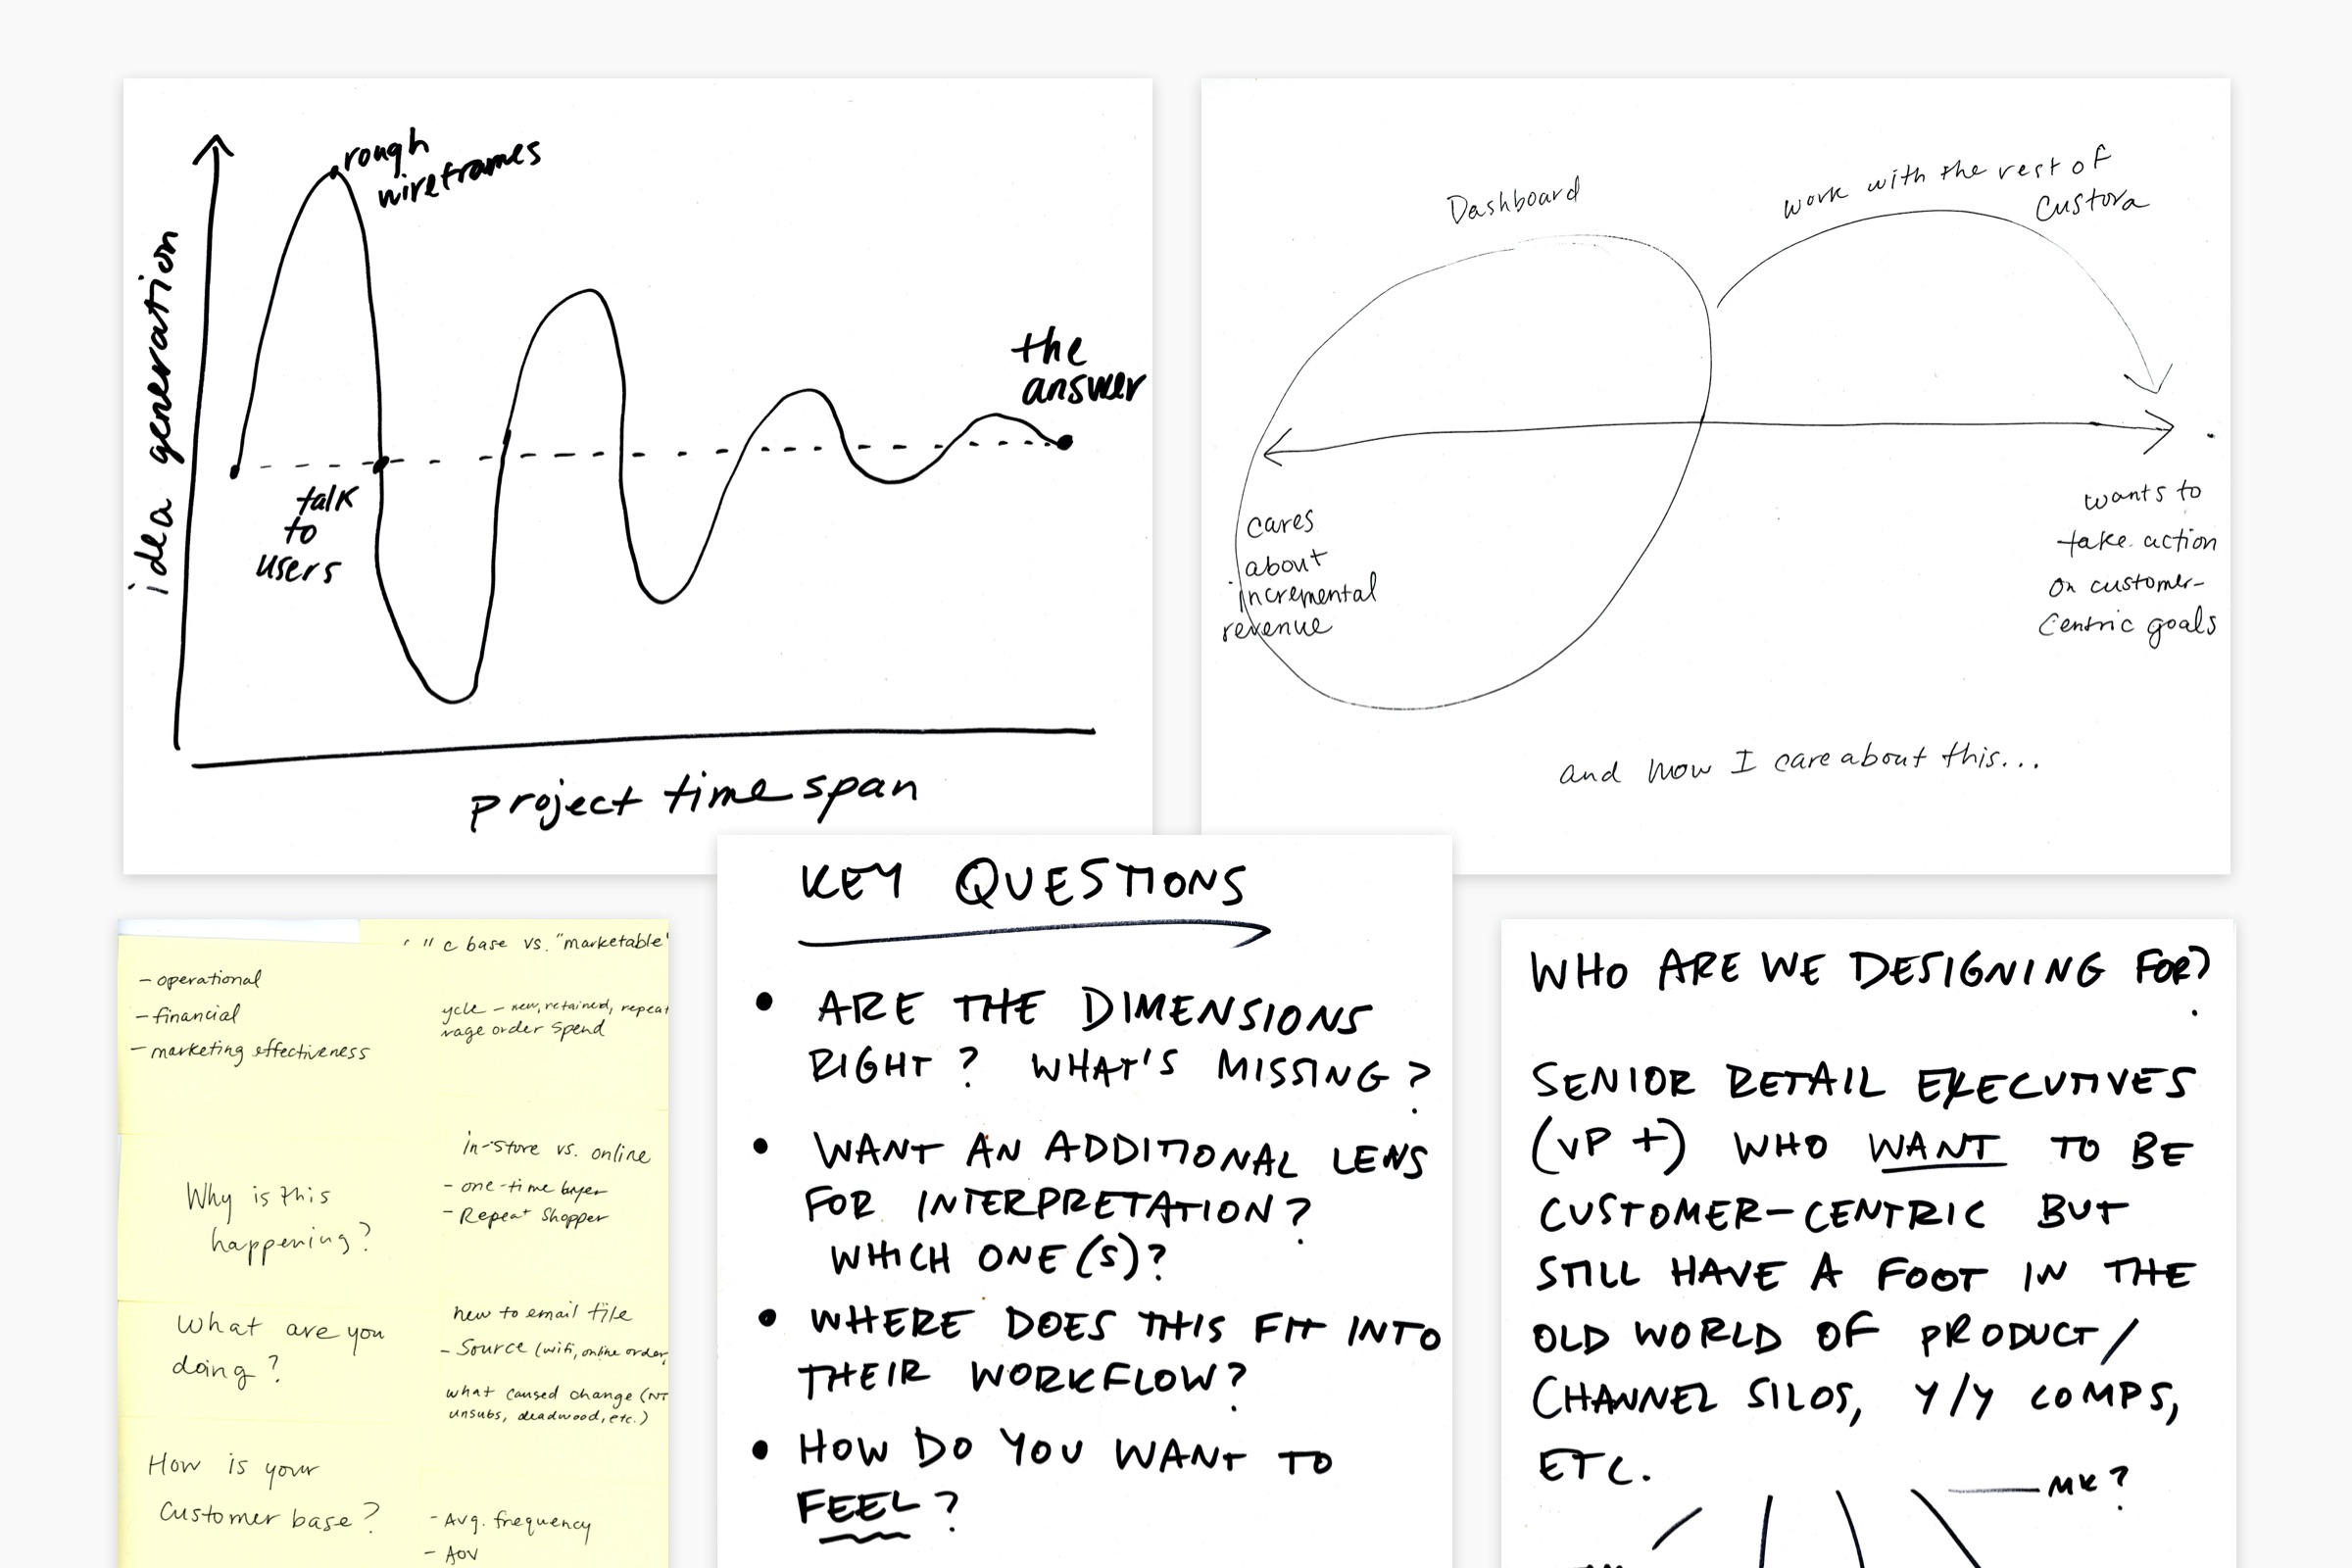 rough
wireframes
idea generation
talk
to
users
the
answer
project time span
Dashboard
work with the rest of
Custora
cares
about
incremental
revenue
wants to
take action
on customer-
centric goals
and now I care about this...
- operational
- financial
- marketing effectiveness
Why is this
happening?
What are you
doing?
How is your
Customer base?
c base vs. "marketable"
ycle - new, retained, repeat
rage order spend
in-store vs. online
- one-time buyer
- Repeat Shopper
new to email file
- Source (wifi, online order,
what caused change (NT
unsubs, deadwood, etc.)
- Avg. frequency
- AOV
KEY QUESTIONS
• ARE THE DIMENSIONS
RIGHT? WHAT'S MISSING?
• WANT AN ADDITIONAL LENS
FOR INTERPRETATION?
WHICH ONE(S)?
• WHERE DOES THIS FIT INTO
THEIR WORKFLOW?
• HOW DO YOU WANT TO
FEEL?
WHO ARE WE DESIGNING FOR?
SENIOR RETAIL EXECUTIVES
(VP +) WHO WANT TO BE
CUSTOMER-CENTRIC BUT
STILL HAVE A FOOT IN THE
OLD WORLD OF PRODUCT/
CHANNEL SILOS, Y/Y COMPS,
ETC.
MK?